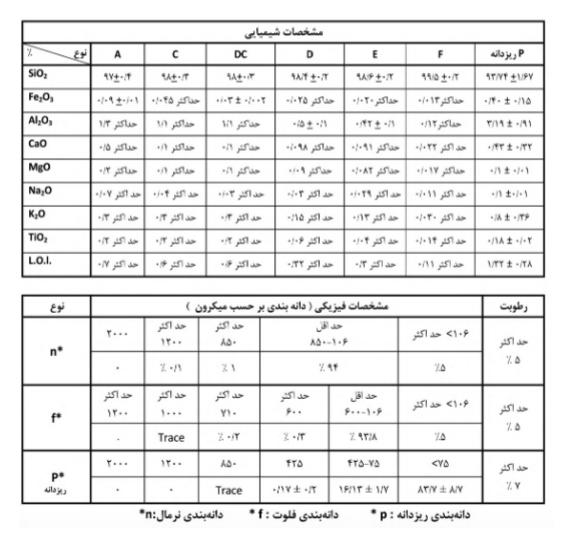 مشخصات شیمیایی
٪ نوع A C DC D E F P ریزدانه
SiO₂ ۹۷±۰/۴ ۹۸±۰/۳ ۹۸±۰/۳ ۹۸/۴ ±۰/۲ ۹۸/۶ ±۰/۲ ۹۹/۵ ±۰/۲ ۹۳/۷۴ ±۱/۶۷
Fe₂O₃ ۰/۰۹ ±۰/۰۱ حداکثر ۰/۰۴۵ ۰/۰۳ ± ۰/۰۰۲ حداکثر ۰/۰۲۵ حداکثر ۰/۰۲۰ حداکثر ۰/۰۱۳ ۰/۴۰ ± ۰/۱۵
Al₂O₃ حداکثر ۱/۳ حداکثر ۱/۱ حداکثر ۱/۱ ۰/۵ ± ۰/۱ ۰/۴۲ ± ۰/۱ حداکثر ۰/۱۲ ۳/۱۹ ± ۰/۹۱
CaO حداکثر ۰/۵ حداکثر ۰/۱ حداکثر ۰/۱ حداکثر ۰/۰۹۸ حداکثر ۰/۰۹۱ حداکثر ۰/۰۲۲ ۰/۴۳ ± ۰/۳۲
MgO حداکثر ۰/۳ حداکثر ۰/۱ حداکثر ۰/۱ حداکثر ۰/۰۹ حداکثر ۰/۰۸۲ حداکثر ۰/۰۱۷ ۰/۱ ± ۰/۰۱
Na₂O حد اکثر ۰/۰۷ حد اکثر ۰/۰۴ حد اکثر ۰/۰۳ حد اکثر ۰/۰۳ حد اکثر ۰/۰۲۹ حد اکثر ۰/۰۱۱ ۰/۱ ±۰/۰۱
K₂O حد اکثر ۰/۳ حد اکثر ۰/۳ حد اکثر ۰/۳ حد اکثر ۰/۱۵ حد اکثر ۰/۱۳ حد اکثر ۰/۰۳۰ ۰/۸ ± ۰/۳۶
TiO₂ حد اکثر ۰/۲ حد اکثر ۰/۲ حد اکثر ۰/۲ حد اکثر ۰/۰۶ حد اکثر ۰/۰۴ حد اکثر ۰/۰۱۴ ۰/۱۸ ± ۰/۰۲
L.O.I. حد اکثر ۰/۷ حد اکثر ۰/۶ حد اکثر ۰/۶ حد اکثر ۰/۳۲ حد اکثر ۰/۳ حد اکثر ۰/۱۱ ۱/۳۲ ± ۰/۲۸
نوع مشخصات فیزیکی ( دانه بندی بر حسب میکرون ) رطوبت
n* ۲۰۰۰ حد اکثر ۱۲۰۰ حد اکثر ۸۵۰ حد اقل ۸۵۰-۱۰۶ حد اکثر <۱۰۶ حد اکثر ٪ ۵
۰ ٪ ۰/۱ ٪ ۱ ٪ ۹۴ ٪۵
f* حد اکثر ۱۲۰۰ حد اکثر ۱۰۰۰ حد اکثر ۷۱۰ حد اکثر ۶۰۰ حد اقل ۶۰۰-۱۰۶ حد اکثر <۱۰۶ حد اکثر ٪ ۵
۰ Trace ٪ ۰/۲ ٪ ۰/۳ ٪ ۹۳/۸ ٪۵
p* ریزدانه ۲۰۰۰ ۱۲۰۰ ۸۵۰ ۴۲۵ ۴۲۵-۷۵ <۷۵ حد اکثر ٪ ۷
۰ ۰ Trace ۰/۱۷ ± ۰/۲ ۱۶/۱۳ ± ۱/۷ ۸۳/۷ ± ۸/۷
n*:دانه‌بندی نرمال * f : دانه‌بندی فلوت * p : دانه‌بندی ریزدانه